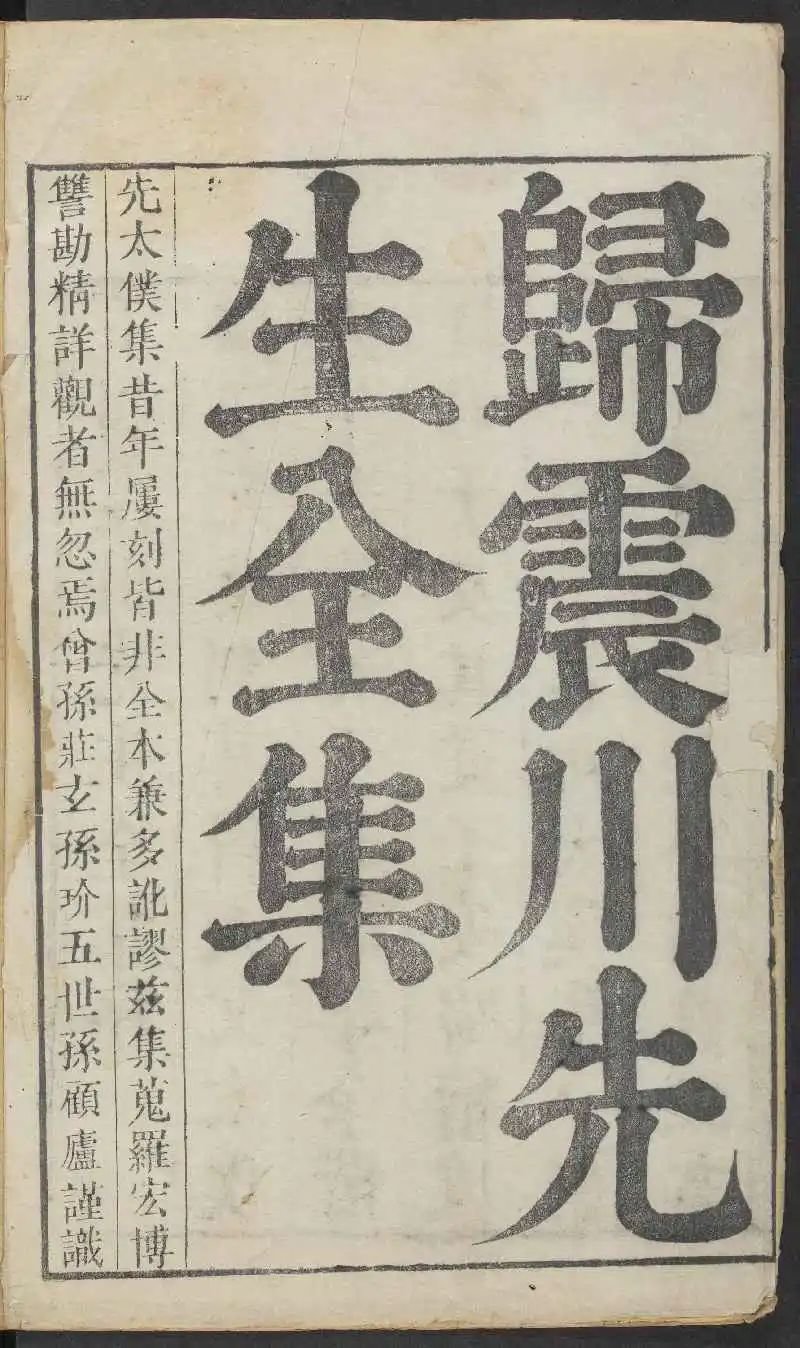 歸震川先
生全集
先太僕集昔年屢刻皆非全本兼多訛謬茲集蒐羅宏博
讐勘精詳觀者無忽焉曾孫莊玄孫玠五世孫顧廬謹識